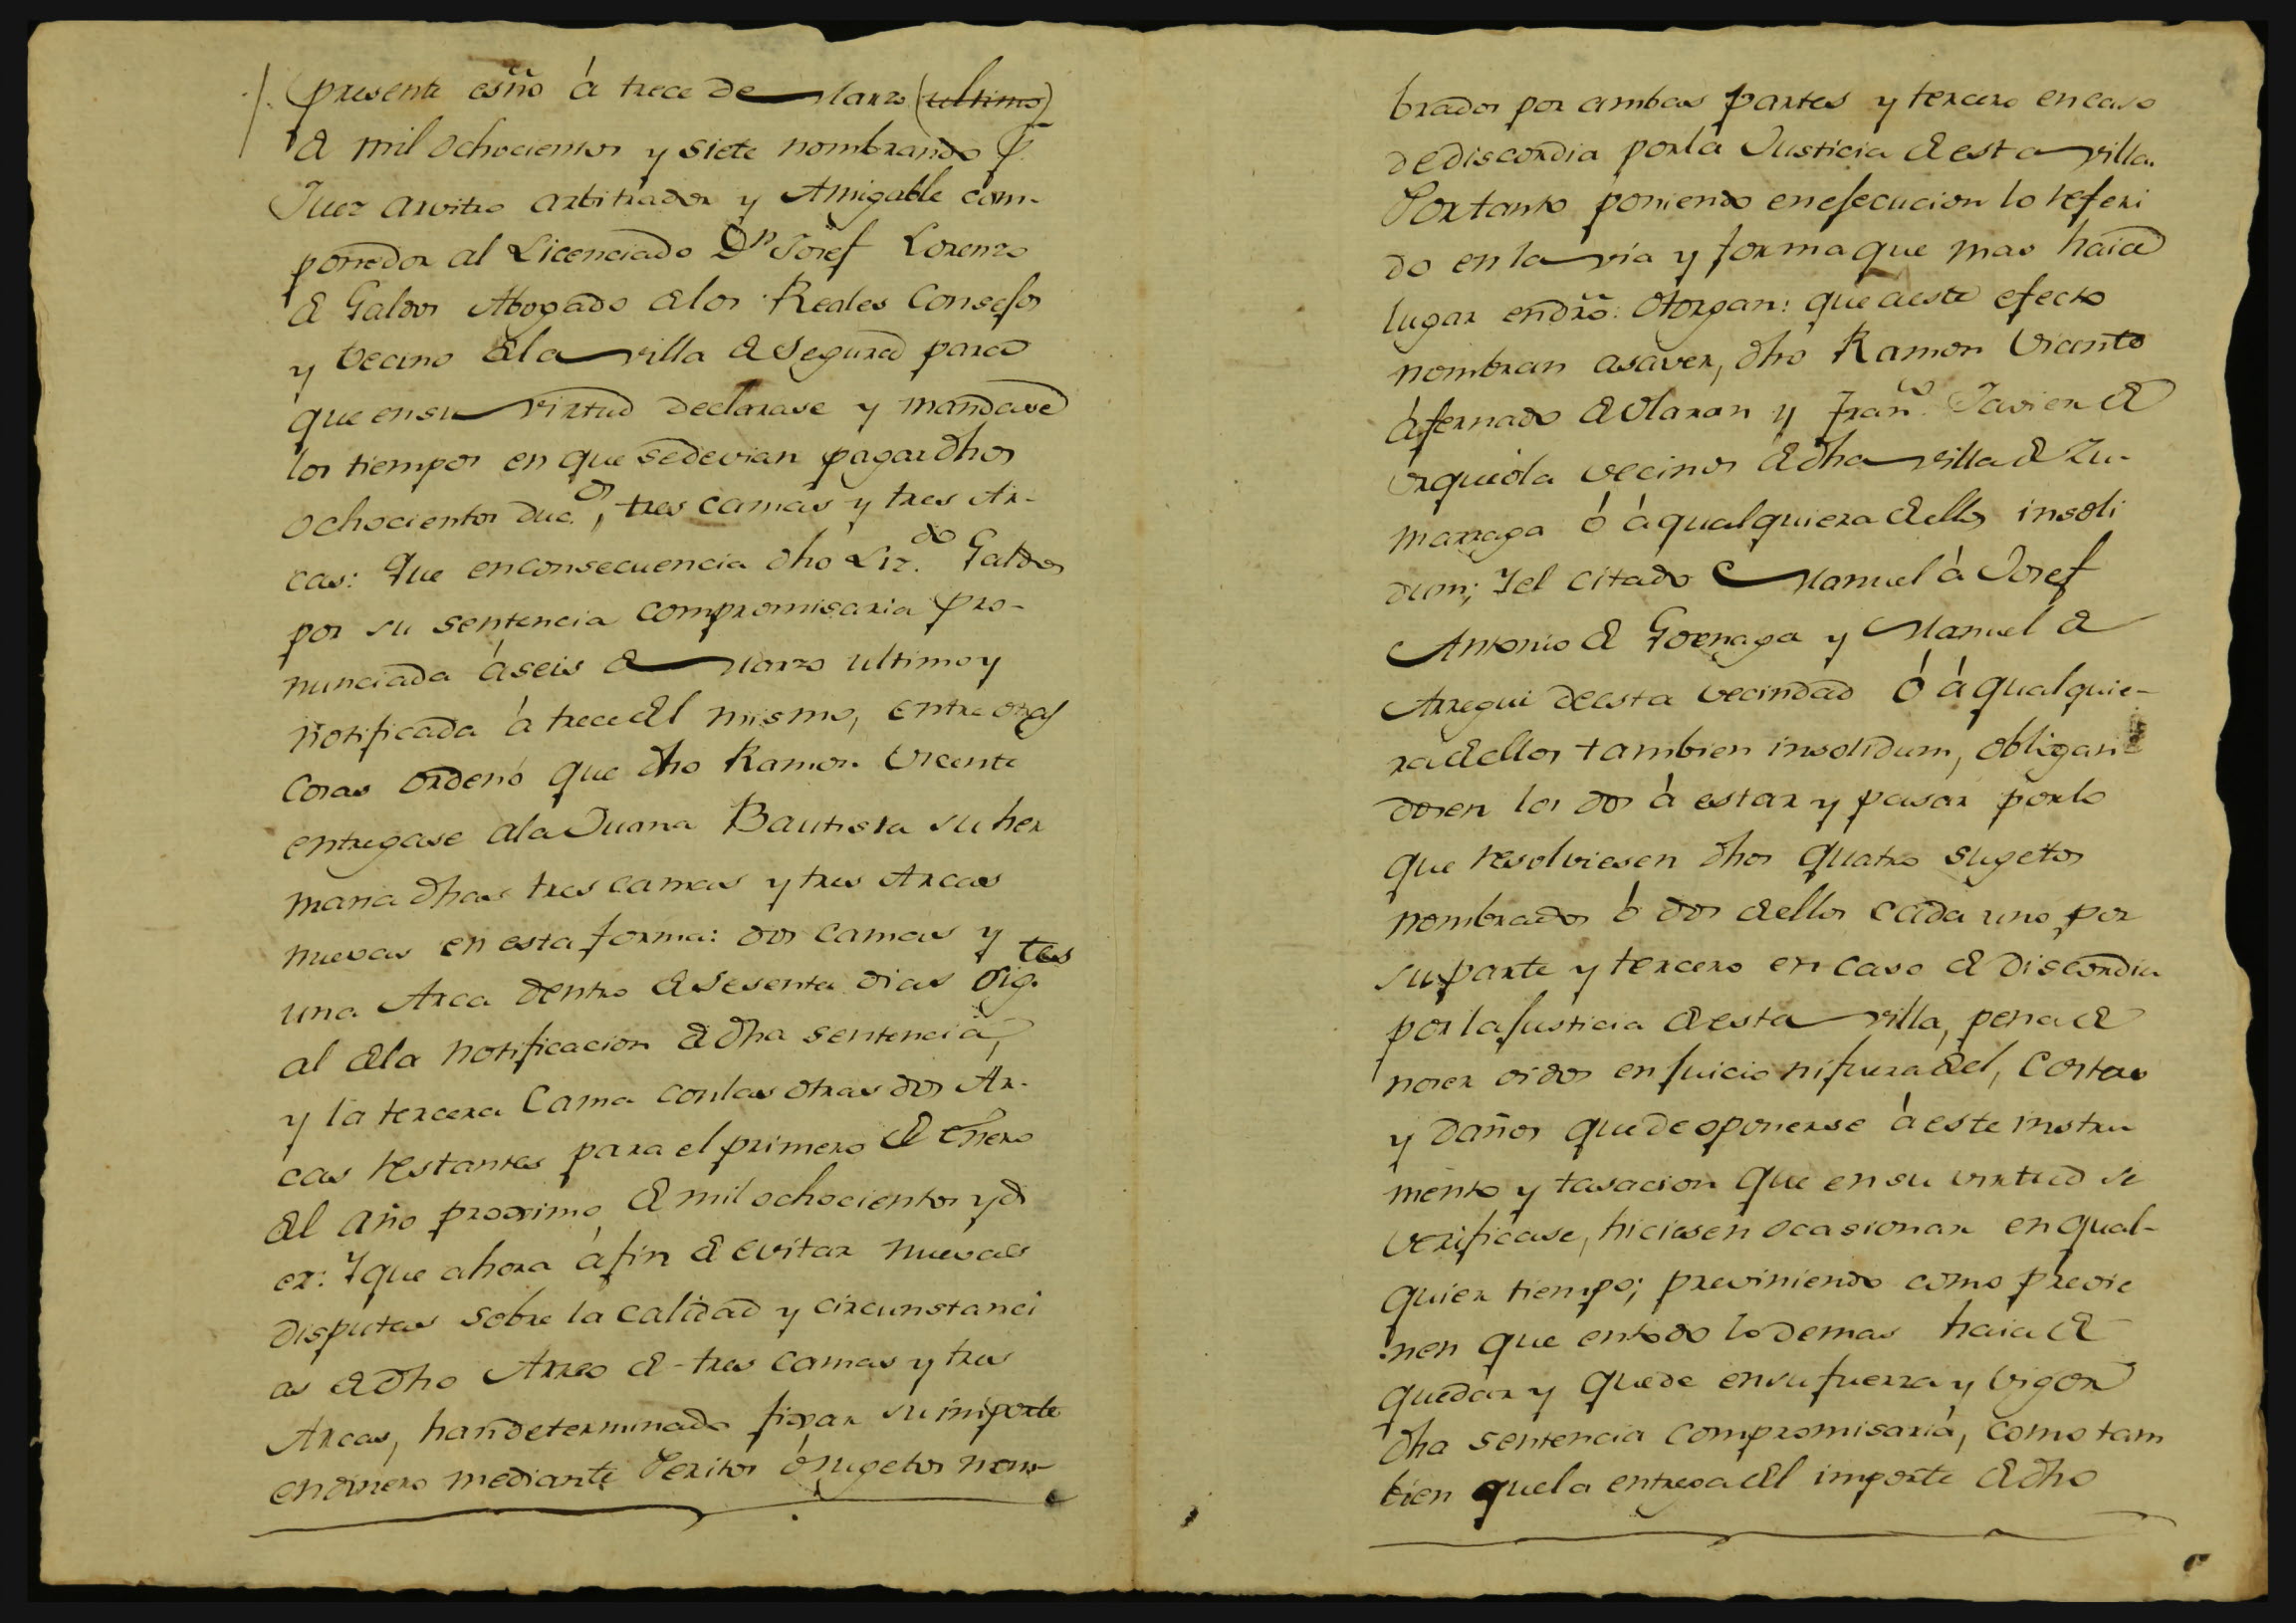 presente esñño á trece de Marzo (ultimo)
de mil ochocientos y siete nombrando p.
Juez arvitro arbitrador y Amigable com-
ponedor al Licenciado Dn Josef Lorenzo
de Galdos Abogado de los Reales Consejos
y vecino de la villa de Segura para
que en su virtud declarase y mandase
los tiempos en que se devian pagar dhos
ochocientos duc.os, tres camas y tres Ar-
cas: Que en consecuencia dho Liz.do Galdos
por su sentencia compromisaria pro-
nunciada á seis de Marzo ultimo y
notificada á trece del mismo, entre otras
cosas ordenó que dho Ramon Vicente
entregase a la Juana Bautista su her
mana dhas tres camas y tres Arcas
nuevas en esta forma: dos camas y
una Arca dentro de sesenta dias sig.tes
al de la notificacion de dha sentencia,
y la tercera Cama con las otras dos Ar-
cas restantes para el primero de Enero
del año proximo de mil ochocientos y di
ez: Y que ahora á fin de evitar nuevas
disputas sobre la calidad y circunstanci
as de dho Arreo de tres camas y tres
Arcas, han determinado fixar su importe
en dinero mediante Peritos ó sugetos nom-
brados por ambas partes y tercero en caso
de discordia por la Justicia de esta villa.
Por tanto poniendo en efecucion lo referi
do en la via y forma que mas haia
lugar en dro: Otorgan: que a este efecto
nombran a saver, dho Ramon Vicente
á fernado de Olaran y Fran.co Javier de
Urquiola vecinos de dha villa de Zu-
marraga ó á qualquiera de ellos insoli
dum; Y el citado Manuel á Josef
Antonio de Gornaga y Manuel de
Arregui de esta vecindad ó á qualquie-
ra de ellos tambien insolidum, obligan
dosen los dos á estar y pasar por lo
que resolviesen dhos quatro sugetos
nombrados ó dos de ellos cada uno por
su parte y tercero en caso de discordia
por la Justicia de esta villa, pena de
no ser oidos en juicio ni fuera de el, Costas
y daños que de oponerse á este instru
mento y tasacion que en su virtud se
verificase, hiciesen ocasionar en qual-
quier tiempo; previniendo como previe
nen que en todo lo demas haia de
quedar y quede en su fuerza y vigor
dha sentencia compromisaria, como tam
bien que la entrega del importe de dho